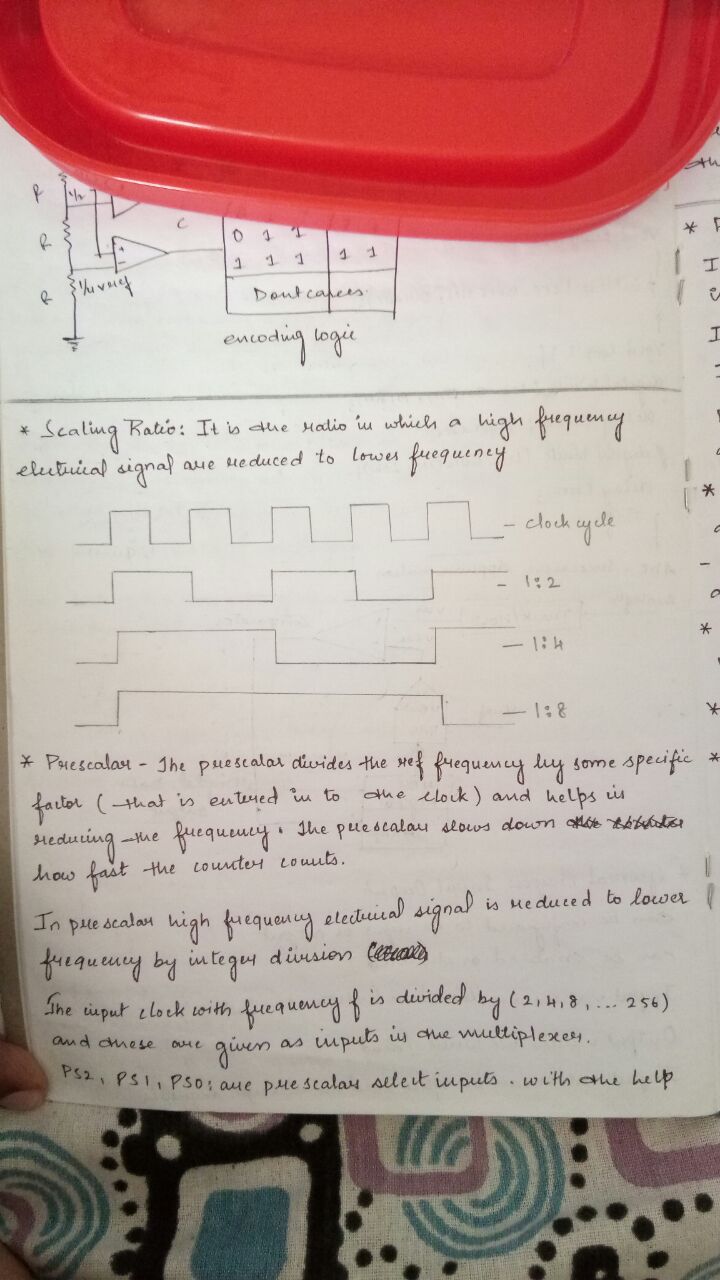 R
1/2
R
C
0 1 1
1 1 1 1 1
R
1/4 Vref
Dontcares
encoding logic
* Scaling Ratio: It is the ratio in which a high frequency
electrical signal are reduced to lower frequency
- clock cycle
- 1:2
- 1:4
- 1:8
* Prescalar - The prescalar divides the ref frequency by some specific
factor (that is entered in to the clock) and helps in
reducing the frequency. The prescalar slows down
how fast the counter counts.
In prescalar high frequency electrical signal is reduced to lower
frequency by integer division
The input clock with frequency f is divided by (2,4,8, ... 256)
and these are given as inputs in the multiplexer.
PS2, PS1, PS0: are prescalar select inputs. with the help